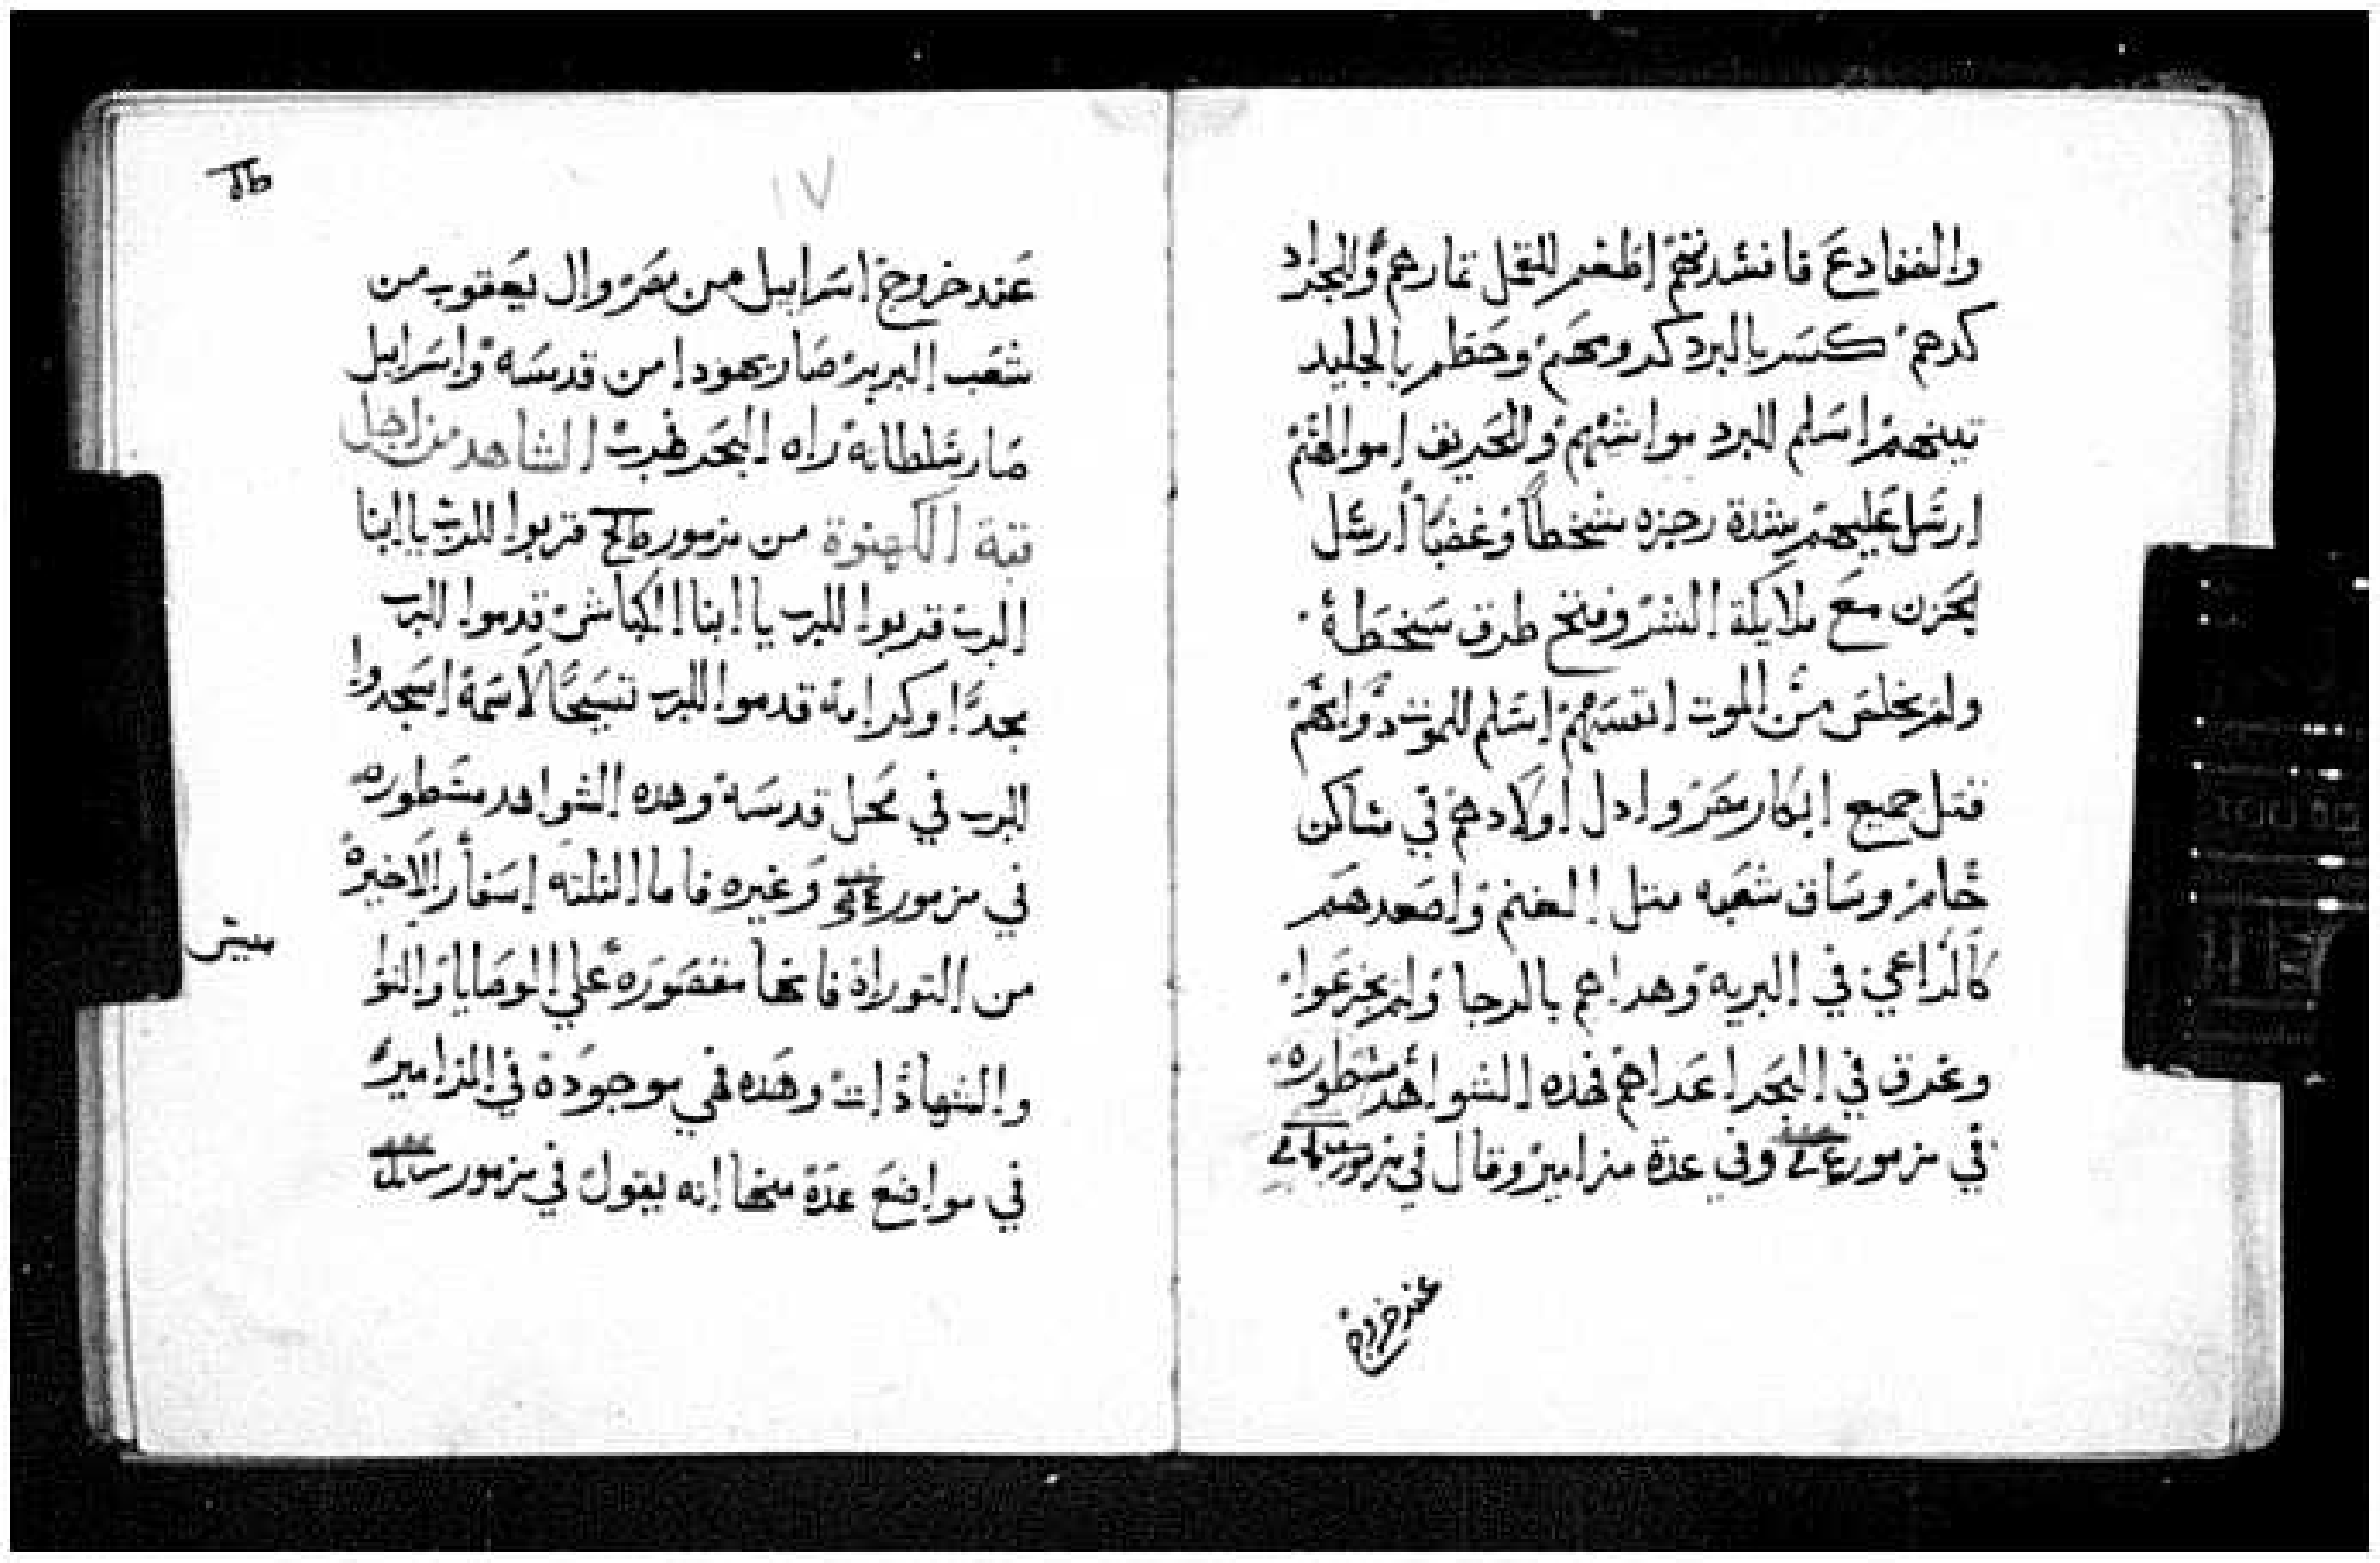 والضفادع فافسدتهم اطعم للقمل تمارهم والجراد
كدهم كسر بالبرد كرومهم وحطم بالجليد
تينهم اسلم للبرد مواشيهم وللحريق اموالهم
ارسل عليهم شدة رجزه سخطاً وغضباً ارسل
بحزن مع ملايكة الشر وفتح طرق سخطه
ولم يخلص من الموت انفسهم اسلم للموت دوابهم
قتل جميع ابكار مصر واول اولادهم في مساكن
حام وساق شعبه متل الغنم واصعدهم
كالراعي في البرية وهداهم بالرجا ولم يجزعوا
وغرق في البحر اعداهم فهذه الشواهد مسطوره
في مزمور وفي عدة مزامير وقال في مزمور
عند خروج
١٧
عند خروج اسراييل من مصر وال يعقوب من
شعب البربر صار يهودا من قدسه واسراييل
صار سلطانه راه البحر فهرب الشاهد من اجل
تتة الكهنوة من مزمور قربوا للرب يا ابنا
الرب قربوا للرب يا ابنا الكباش قدموا للرب
مجدا وكرامه قدموا للرب تسبيحا لاسمه اسجدوا
للرب في محل قدسه وهذه الشواهد مسطوره
في مزمور وغيره فاما التلته اسفار الاخيره
من التوراة فانها مقصوره علي الوصايا والنو
والشهاذات وهذه فهي موجودة في المزامير
في مواضع عدة منها انه يقول في مزمور